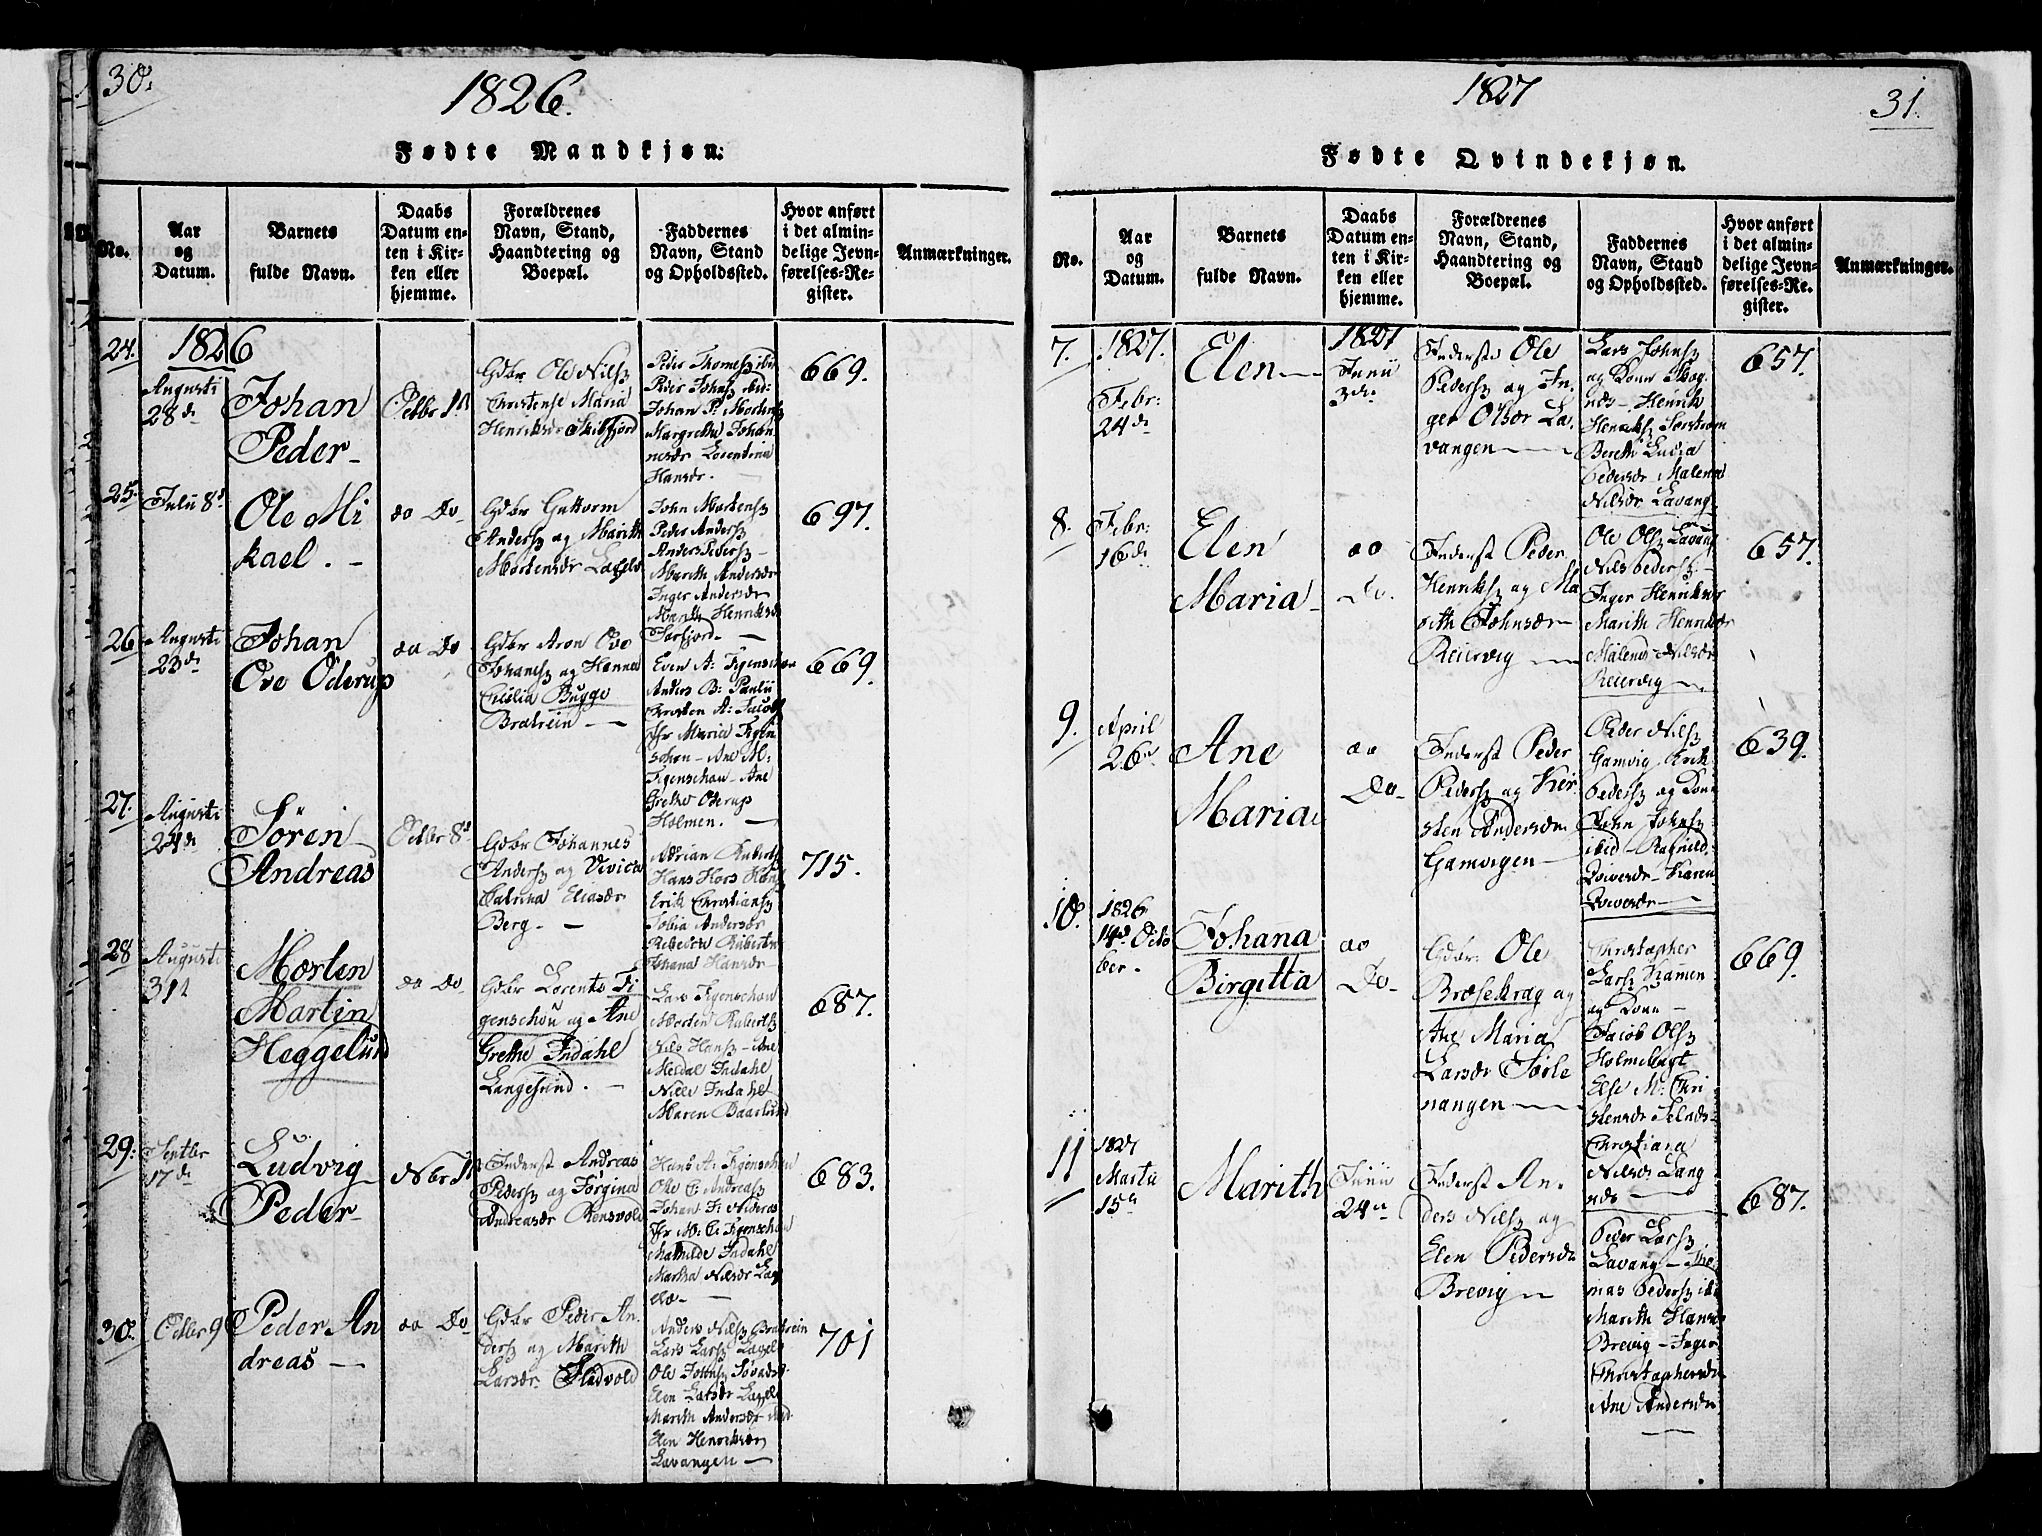 30.
1826.
Fødte Mandkjøn.
No.
Aar
og
Datum.
Barnets
fulde Navn.
Daabs
Datum en-
ten i Kir-
ken eller
hjemme.
Forældrenes
Navn, Stand,
Haandtering og
Boepæl.
Faddernes
Navn, Stand
og Opholdssted.
Hvor anført
i det almin-
delige Jevn-
førelses-Re-
gister.
Anmærkninger.
24.
1826
Augusti
28d
Johan
Peder
Octbr 1
Gdbr Ole Nilss
Christense Maria
Henriksdr Skibfjord
Peder Thomess ibid
Peder Johnss ibid
Johan P. Mortenss
Margrethe Johan
nesdr Lorentina
Hansdr
669.
25.
Julii 8d
Ole Mi
kael.
do Do
Gdbr Guttorm
Anderss og Marith
Mortensdr
John Mortenss
Peder Anderss
Anders Pederss
Marith Andersdr
Inger Andersdr
Henriksdr
697.
26
Augusti
23d
Johan
Ove Oderup
do Do
Gdbr Aron Ove
Johaness og Hanna
Cicilia Bugge
Bratrein
Even A: Figenschou
Anders B: Paulii
A: Jacobs
Jfr Maria Figen
schou - Ane M:
Figenschou - Ane
Grethe Oderup
Holmen.
669.
27.
Augusti
24d
Sören
Andreas
Octbr 8d
Gdbr Johannes
Anderss og Vivica
Catrina Eliasdr
Berg.
Adrian Robertss
Hans
Erik Christianss
Andersdr
Rebecca
Johana Hansdr
715.
28
Augusti
31t
Morten
Martin
Heggelund
do Do
Gdbr Lorents Fi
genschou og Ane
Grethe Indahl
Langesund.
Lars Figenschou
Morten Robertss
Nils Hanss - Ane
Meldal Indahl
Nille Indahl
Maren Baarlund
687.
29.
Septbr
17d
Ludvig
Peder
Nbr 1
Inderst Andreas
Pederss og Jorgina
Andreasdr Rensvold
Hans A: Figenschou
Ole C: Andreass
Johan
Jfr M: C: Figenschou
Mathilde Indahl
Martha Nilsdr
683.
30.
Octbr 9
Peder An
dreas
do Do
Gdbr Peder An
derss og Marith
Larsdr
Anders Nilss Bratrein
Lars Larss
Ole Johnss
Elen Larsdr
Marith Andersdr
Elen Henriksdr
Lavangen
701
1827
31.
Fødte Qvindekjøn.
No.
Aar
og
Datum.
Barnets
fulde Navn.
Daabs
Datum en-
ten i Kir-
ken eller
hjemme.
Forældrenes
Navn, Stand,
Haandtering og
Boepæl.
Faddernes
Navn, Stand
og Opholdssted.
Hvor anført
i det almin-
delige Jevn-
førelses-Re-
gister.
Anmærkninger.
7.
1827.
Febr:
24d
Elen
1827
Junii
3die
Inderste Ole
Pederss og In
ger Olsdr La
vangen
Lars Johnss
og Kone Skog
næs - Henrik
Henrikss
Bereth Lucia
Pedersdr Malena
Nilsdr Lavang
657.
8.
Febr:
16d
Elen
Maria
do
Do.
Inderst Peder
Henrikss og Ma
rith Johnsdr
Reiervig
Ole Olss Lavang
Nils Pederss
Inger Henriksdr
Marith Henriksdr
Malena Nilsdr
Reiervig
657.
9.
April
26d
Ane
Maria
do
Do
Inderst Peder
Pederss og Kir
sten Andersdr
Gamvigen
Peder Nilss
Gamvig. Erik
Pederss og Kone
John Johnss
ibid - Ragnild
Iversdr - Karen
Iversdr
639.
10.
1826
14d Octo
ber.
Johana
Birgitta
do
Do
Gdbr: Ole
Brosekrog og
Ane Maria
Larsdr Sörle
nangen
Christopher
Larss Kamen
og Kone
Jacob Olss
Holmebugt
Else M: Chri
stensdr
Christiana
Nilsdr Lang
næs
669.
11
1827
Martii
15d
Marith
Junii
24d
Inderst An
ders Nilss og
Elen Pedersdr
Brevig
Peder Larss
Lavang - Tho
mas Pederss ibd
Marith Hansdr
Brevig - Inger
Christophersdr
Ane Andersdr
687.